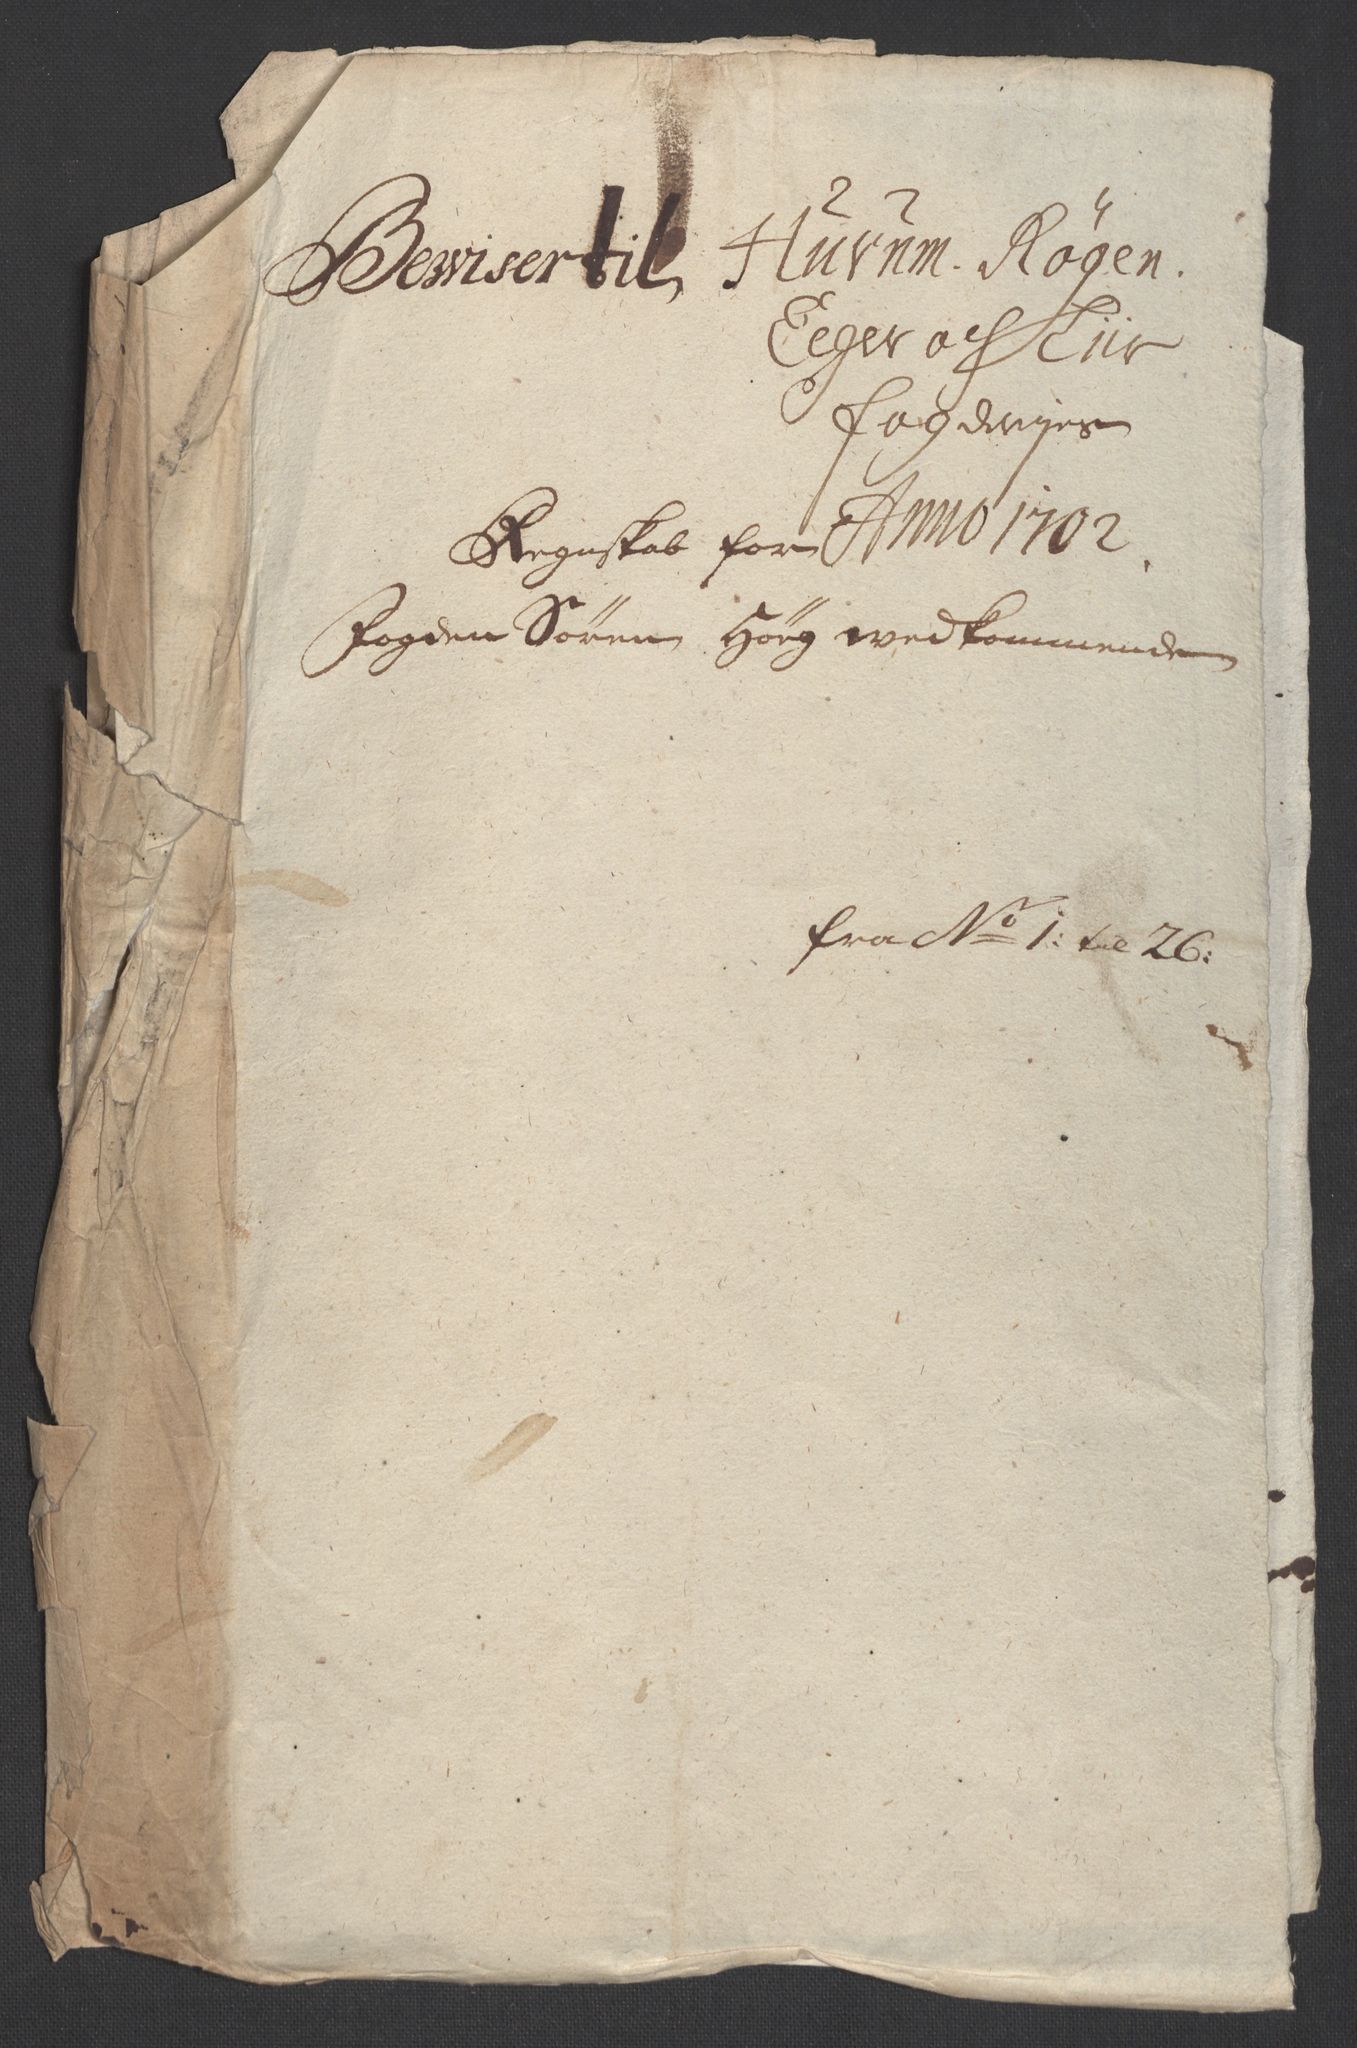 Bewiser til Hurum. Rögen.
Eeger och Liir
fogderies
Regnskab for Anno 1702.
Fogden Sören Höeg wedkommende
fra No 1: til 26: